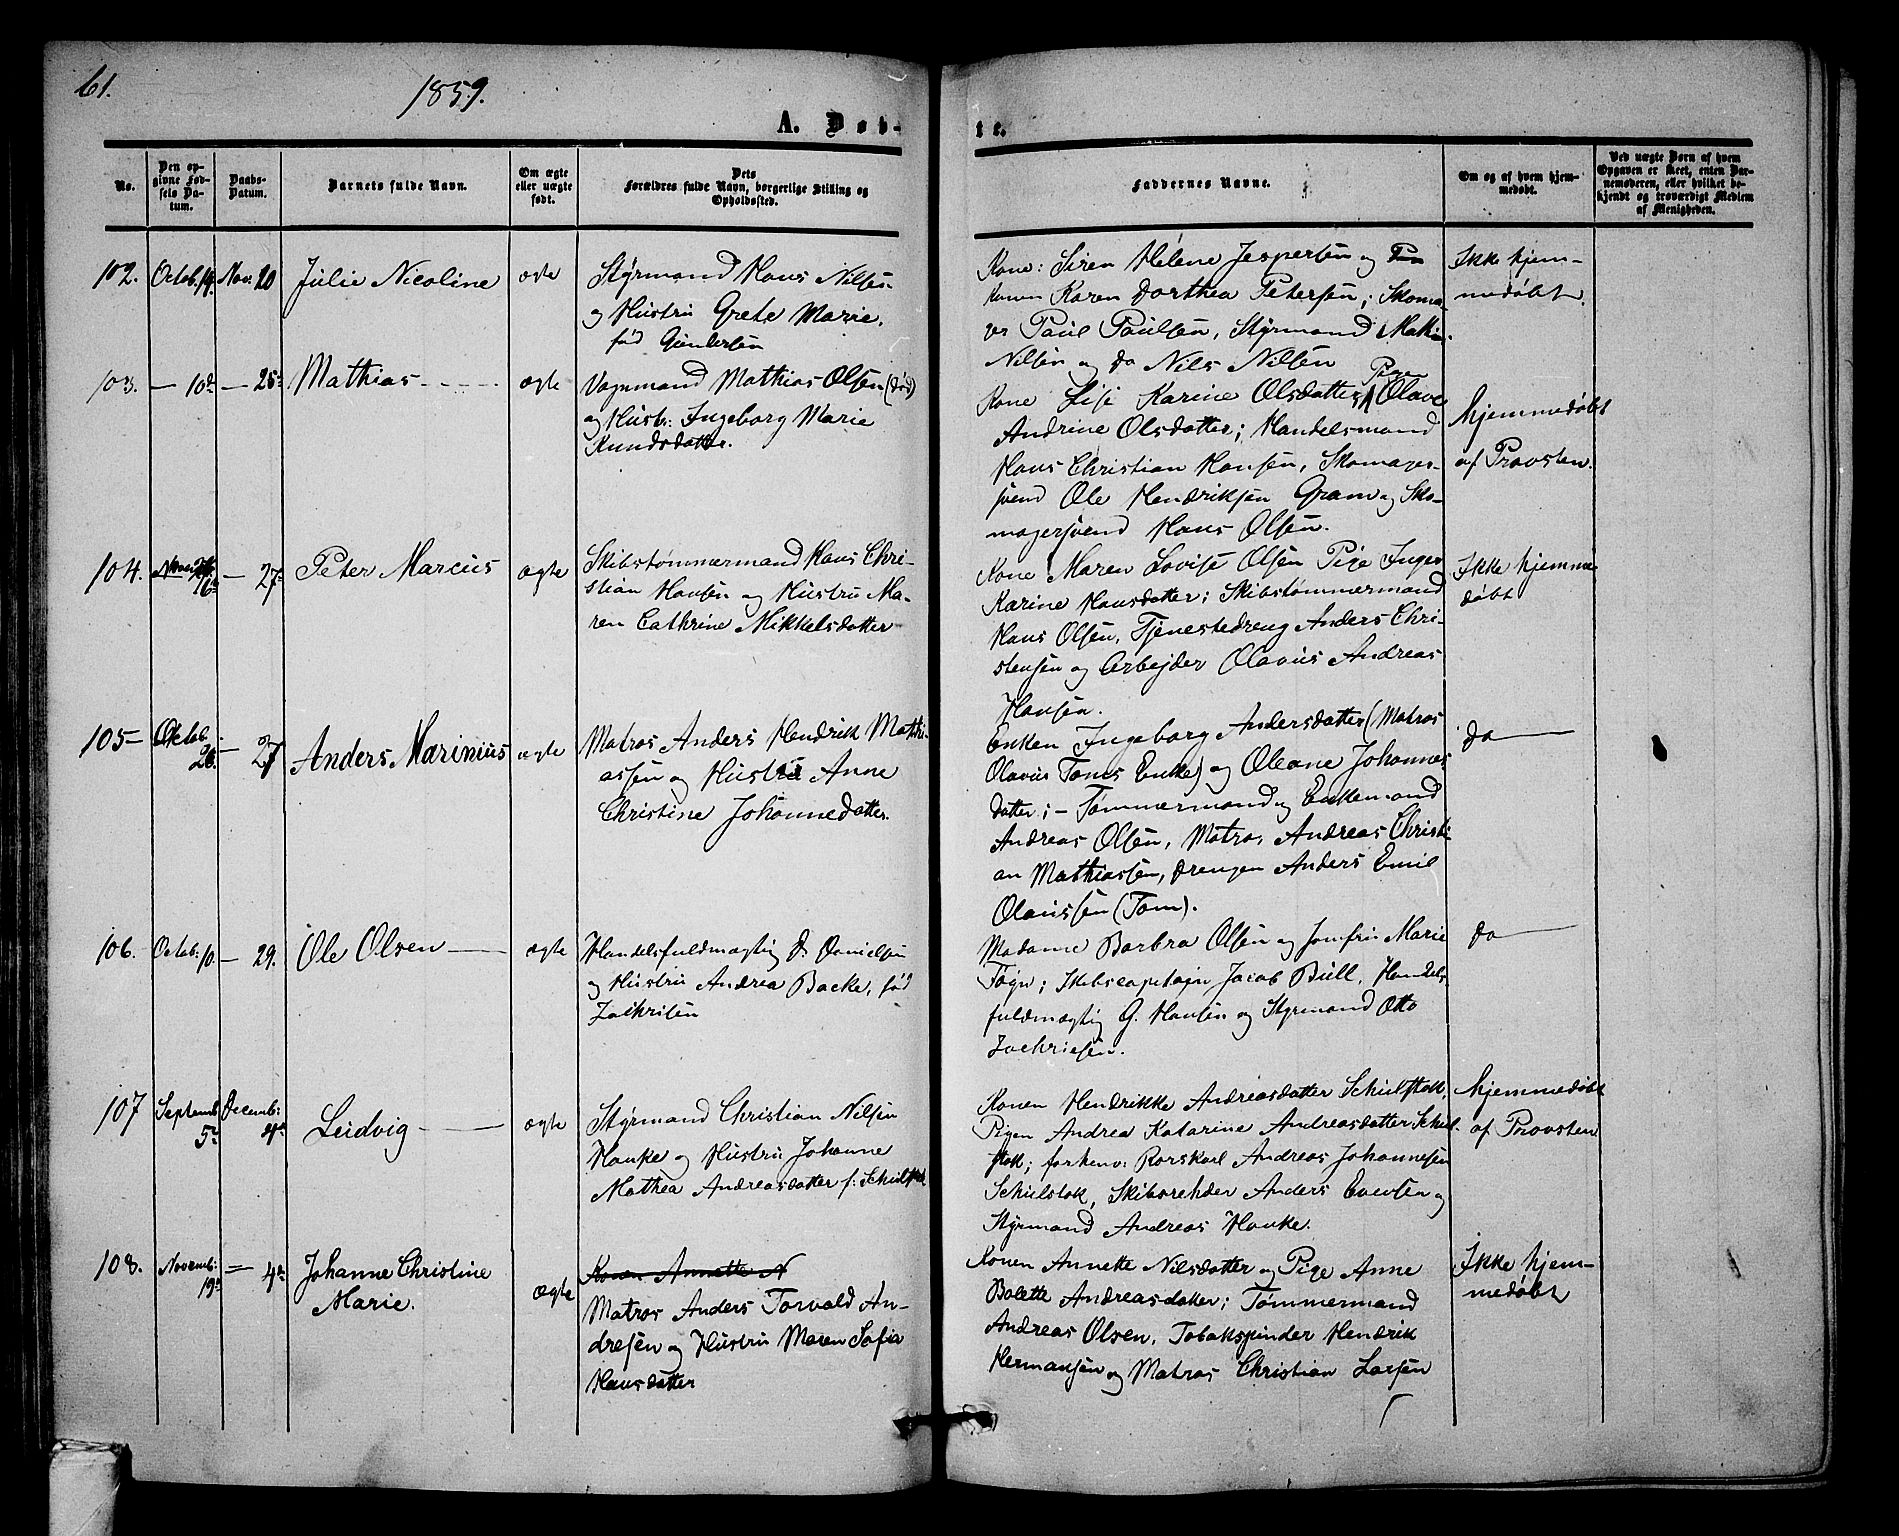 61.
1859.
A. Døb-
te.
No.
Den op-
givne Fød-
sels Da-
tum.
Daabs-
Datum.
Barnets fulde Navn.
Om ægte
eller uægte
født.
Dets
Forældres fulde Navn, borgerlige Stilling og
Opholdssted.
Faddernes Navne.
Om og af hvem hjem-
medøbt.
Ved uægte Børn af hvem
Opgaven er skeet, enten Bar-
nemoderen, eller hvilket be-
kjendt og troværdigt Medlem
af Menigheden.
102. Octob. 19. Nov. 20 Julie Nicoline ægte
Styrmand Hans Nilsen
og Hustru Grete Marie,
fød Gundersen
Kone: Siren Helene Jespersen og
Konen Karen Dorthea Petersen; Skoma-
ger Paul Paulsen, Styrmand
Nilsen og do Nils Nilsen
Ikke hjem-
medøbt.
103. — 10de — 25de Mathias ægte
Vognmand Mathias Olsen (død)
og Hustr: Ingeborg Marie
Knudsdatter.
Kone Lise Karine Olsdatter, Pige Olave
Andrine Olsdatter; Handelsmand
Hans Christian Hansen, Skomager-
svend Ole Hendriksen Gram og Sko-
magersvend Hans Olsen.
hjemmedøbt
af Provsten.
104. 16de — 27de Peter Marcus ægte
Skibstømmermand Hans Chri-
stian Hansen og Hustru Ma-
ren Cathrine Mikkelsdatter
Kone Maren Lovise Olsen Pige Inger
Karine Hansdatter; Skibstømmermand
Hans Olsen, Tjenestedreng Anders Chri-
stensen og Arbejder Olavus Andreas
Hansen.
Ikke hjemme
døbt
105 — Oktob. 26. — 27 Anders Marinius ægte
Matros Anders Hendrik Mathi-
assen og Hustru Anne
Christine Johannedatter.
Enken Ingeborg Andersdatter (Matros
Olavus Toms Enke) og Oleane Johannes
datter; — Tømmermand og Enkemand
Andreas Olsen, Matros Andreas Christi-
an Mathiassen, Drengen Anders Emil
Olaussen (Tom).
do —
106. Octob. 10. — 29. Ole Olsen — ægte
Handelsfuldmægtig D. Danielsen
og Hustru Andrea Backe, fød
Zachrisen
Madame Barbra Olsen og Jomfru Marie
Tøgn; Skibscaptajn Jacob Bull, Handels
fuldmægtig G. Hansen og Styrmand Otto
Zachriesen.
do —
107 Septemb. 5te Decemb: 4de Ludvig — ægte
Styrmand Christian Nilsen
Hauke og Hustru Johanne
Mathea Andreasdatter f: Schulstok
Konen Hendrikke Andreasdatter Schulstok,
Pigen Andrea Katarine Andreasdatter Schul-
stok; forhenv: Rorskarl Andreas Johannesen
Schulstok, Skibsreder Anders Evensen og
Styrmand Andreas Hauke.
hjemmedøbt
af Provsten
108. Novemb: 19de — 4de Johanne Christine
Marie. ægte
Konen Annette N
Matros Anders Torvald An-
dresen og Hustru Maren Sofia
Hansdatter
Konen Annette Nilsdatter og Pige Anne
Bolette Andreasdatter; Tømmermand
Andreas Olsen, Tobakspinder Hendrik
Hermansen og Matros Christian Larsen
Ikke hjem-
medøbt